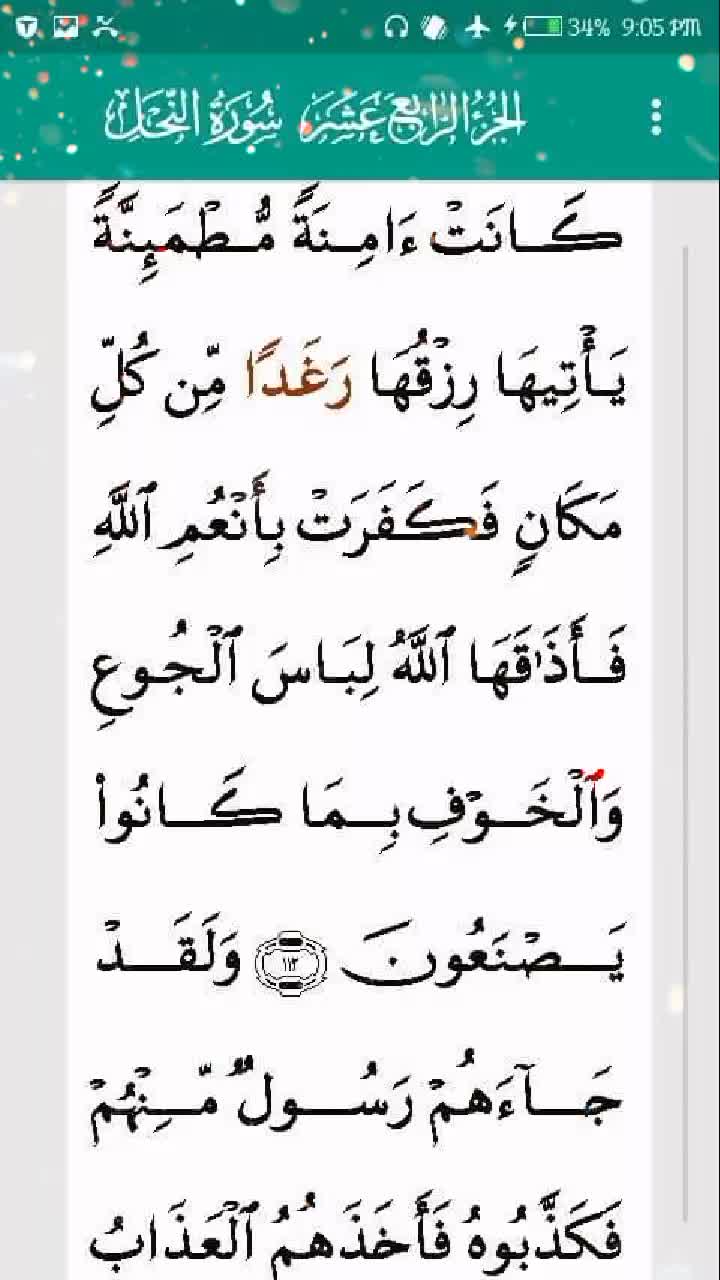 34% 9:05 PM
الجزء الرابع عشر سورة النحل
كَانَتْ ءَامِنَةً مُّطْمَئِنَّةً
يَأْتِيهَا رِزْقُهَا رَغَدًا مِّن كُلِّ
مَكَانٍ فَكَفَرَتْ بِأَنْعُمِ ٱللَّهِ
فَأَذَٰقَهَا ٱللَّهُ لِبَاسَ ٱلْجُوعِ
وَٱلْخَوْفِ بِمَا كَانُوا۟
يَصْنَعُونَ ١١٢ وَلَقَدْ
جَآءَهُمْ رَسُولٌ مِّنْهُمْ
فَكَذَّبُوهُ فَأَخَذَهُمُ ٱلْعَذَابُ